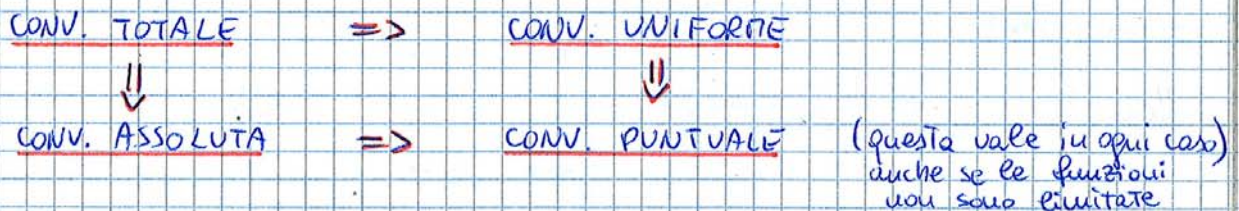 CONV. TOTALE => CONV. UNIFORME
⇓ ⇓
CONV. ASSOLUTA => CONV. PUNTUALE (questa vale in ogni caso)
anche se le funzioni
non sono limitate